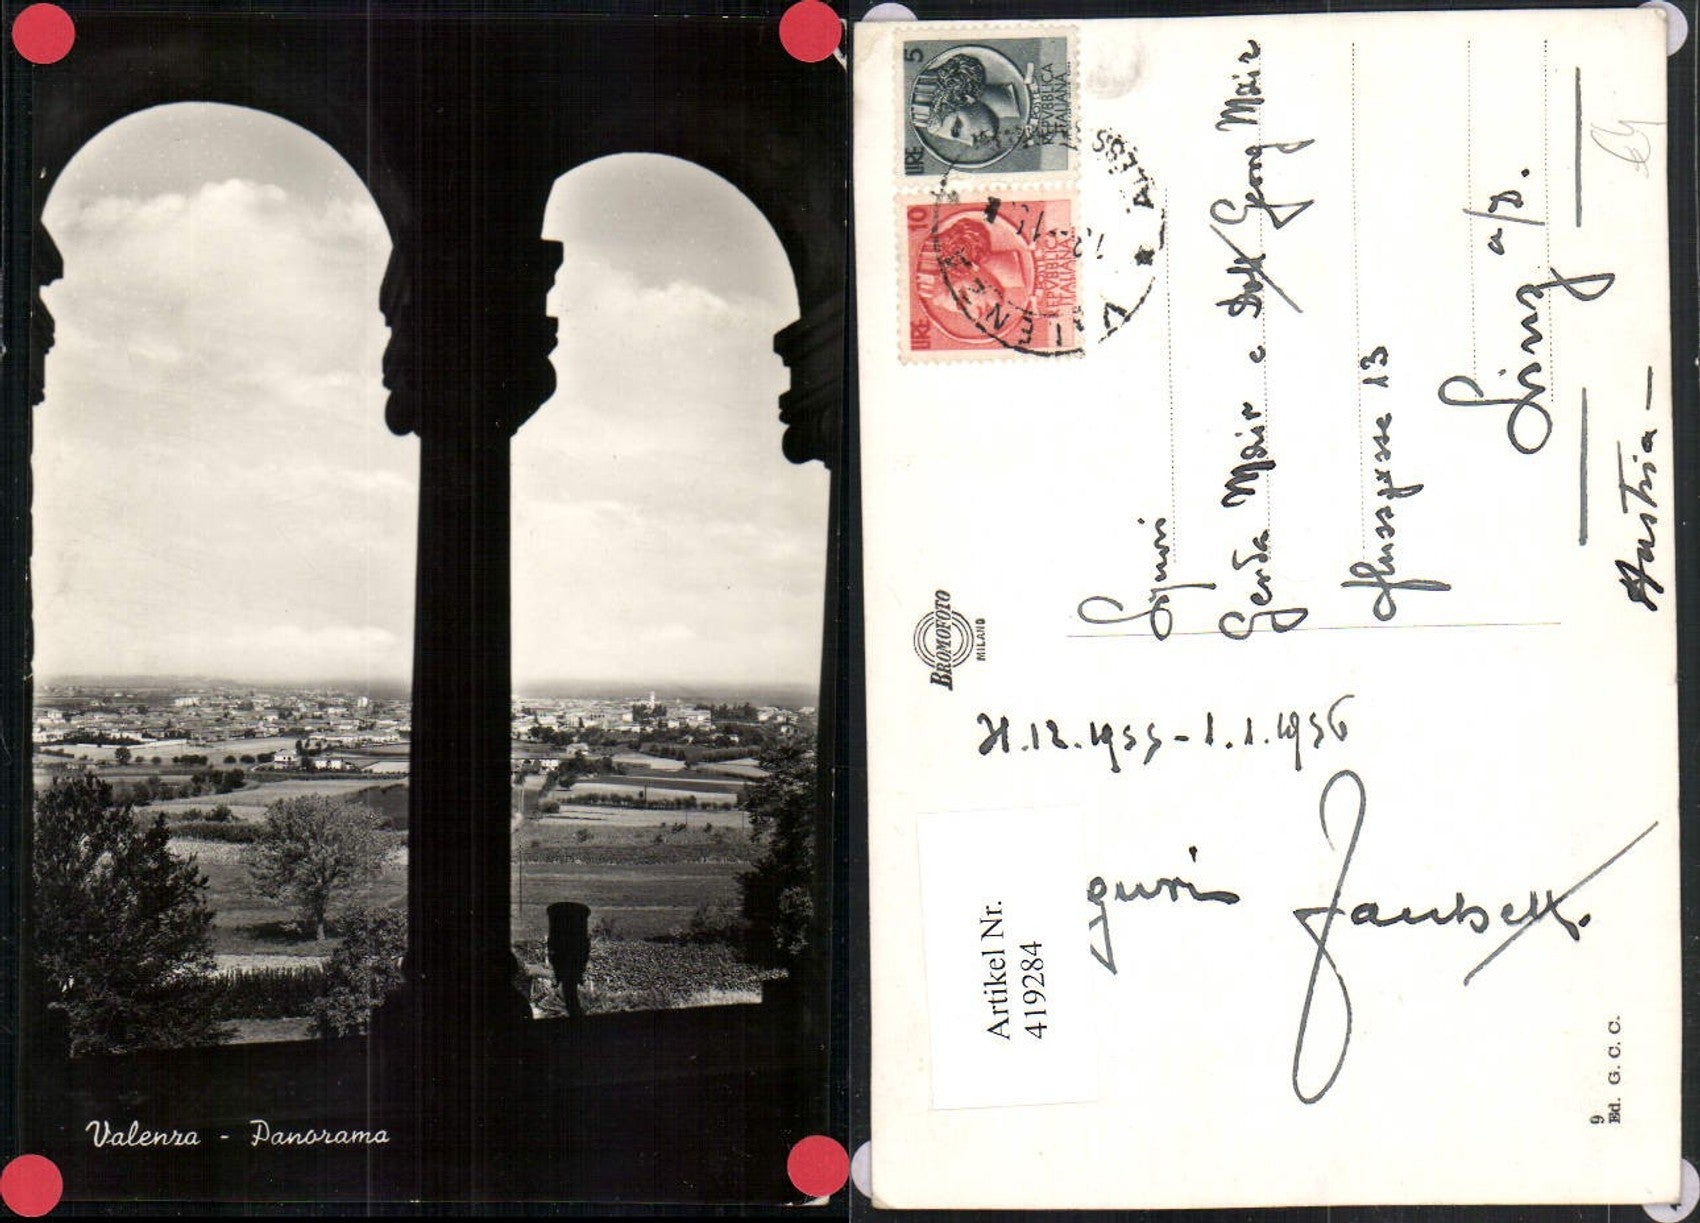 Valenza - Panorama
5
LIRE
POSTE
REPVBBLICA
ITALIANA
10
LIRE
POSTE
REPVBBLICA
ITALIANA
VALENZA
BROMOFOTO
MILANO
Signori
Gerda Mair e Dott Georg Mair
13
Linz a/D.
Austria
31.12.1955-1.1.1956
Artikel Nr.
419284
9
Ed. G. C. C.